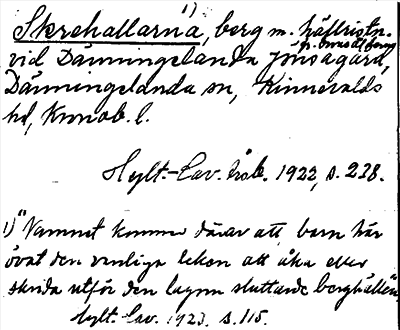 Skrehallarna,¹⁾ berg m. hällristn.
vid Dänningelanda Jonsagård,
Dänningelanda sn, Kinnevalds
hd, Kronob. l.
Hylt.-Cav. årsb. 1922, s. 238.
1) "Namnet kommer därav att barn här
övat den vanliga leken att åka eller
skrida utför den lugnn sluttande berghällen
Hylt. Cav. 1923. s. 115.